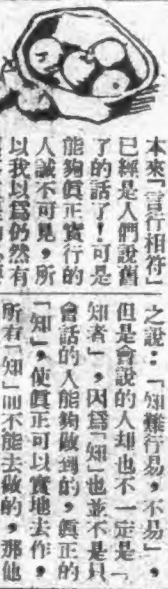 本來「言行相符」
已經是人們說舊
了的話了！可是
能夠眞正實行的
人誠不可見，所
以我以爲仍然有
之說：「知難行易，不易」，
但是會說的人却也不一定是「
知者」，因爲「知」也並不是只
會話的人能夠做到的，眞正的
「知」，使眞正可以實地去作，
所有「知」而不能去做的，那他